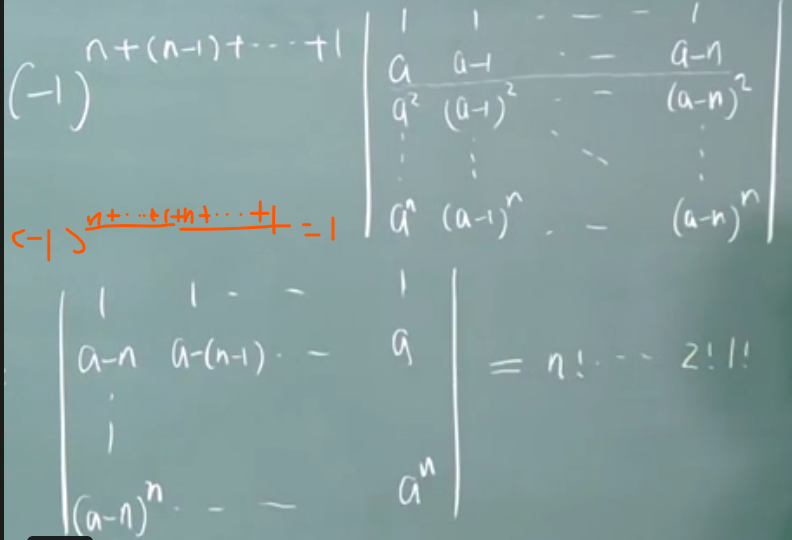 (-1)^{n+(n-1)+\cdots+1} | 1 1 · - - 1 |
| a a-1 · - a-n |
| a² (a-1)² · - (a-n)² |
| ⋮ ⋮ ⋱ ⋮ |
| aⁿ (a-1)ⁿ · - (a-n)ⁿ |
(-1)^{n+\cdots+1+n+\cdots+1} = 1
| 1 1 - - 1 |
| a-n a-(n-1) · - a | = n! ··· 2! 1!
| ⋮ |
| (a-n)ⁿ · - - aⁿ |